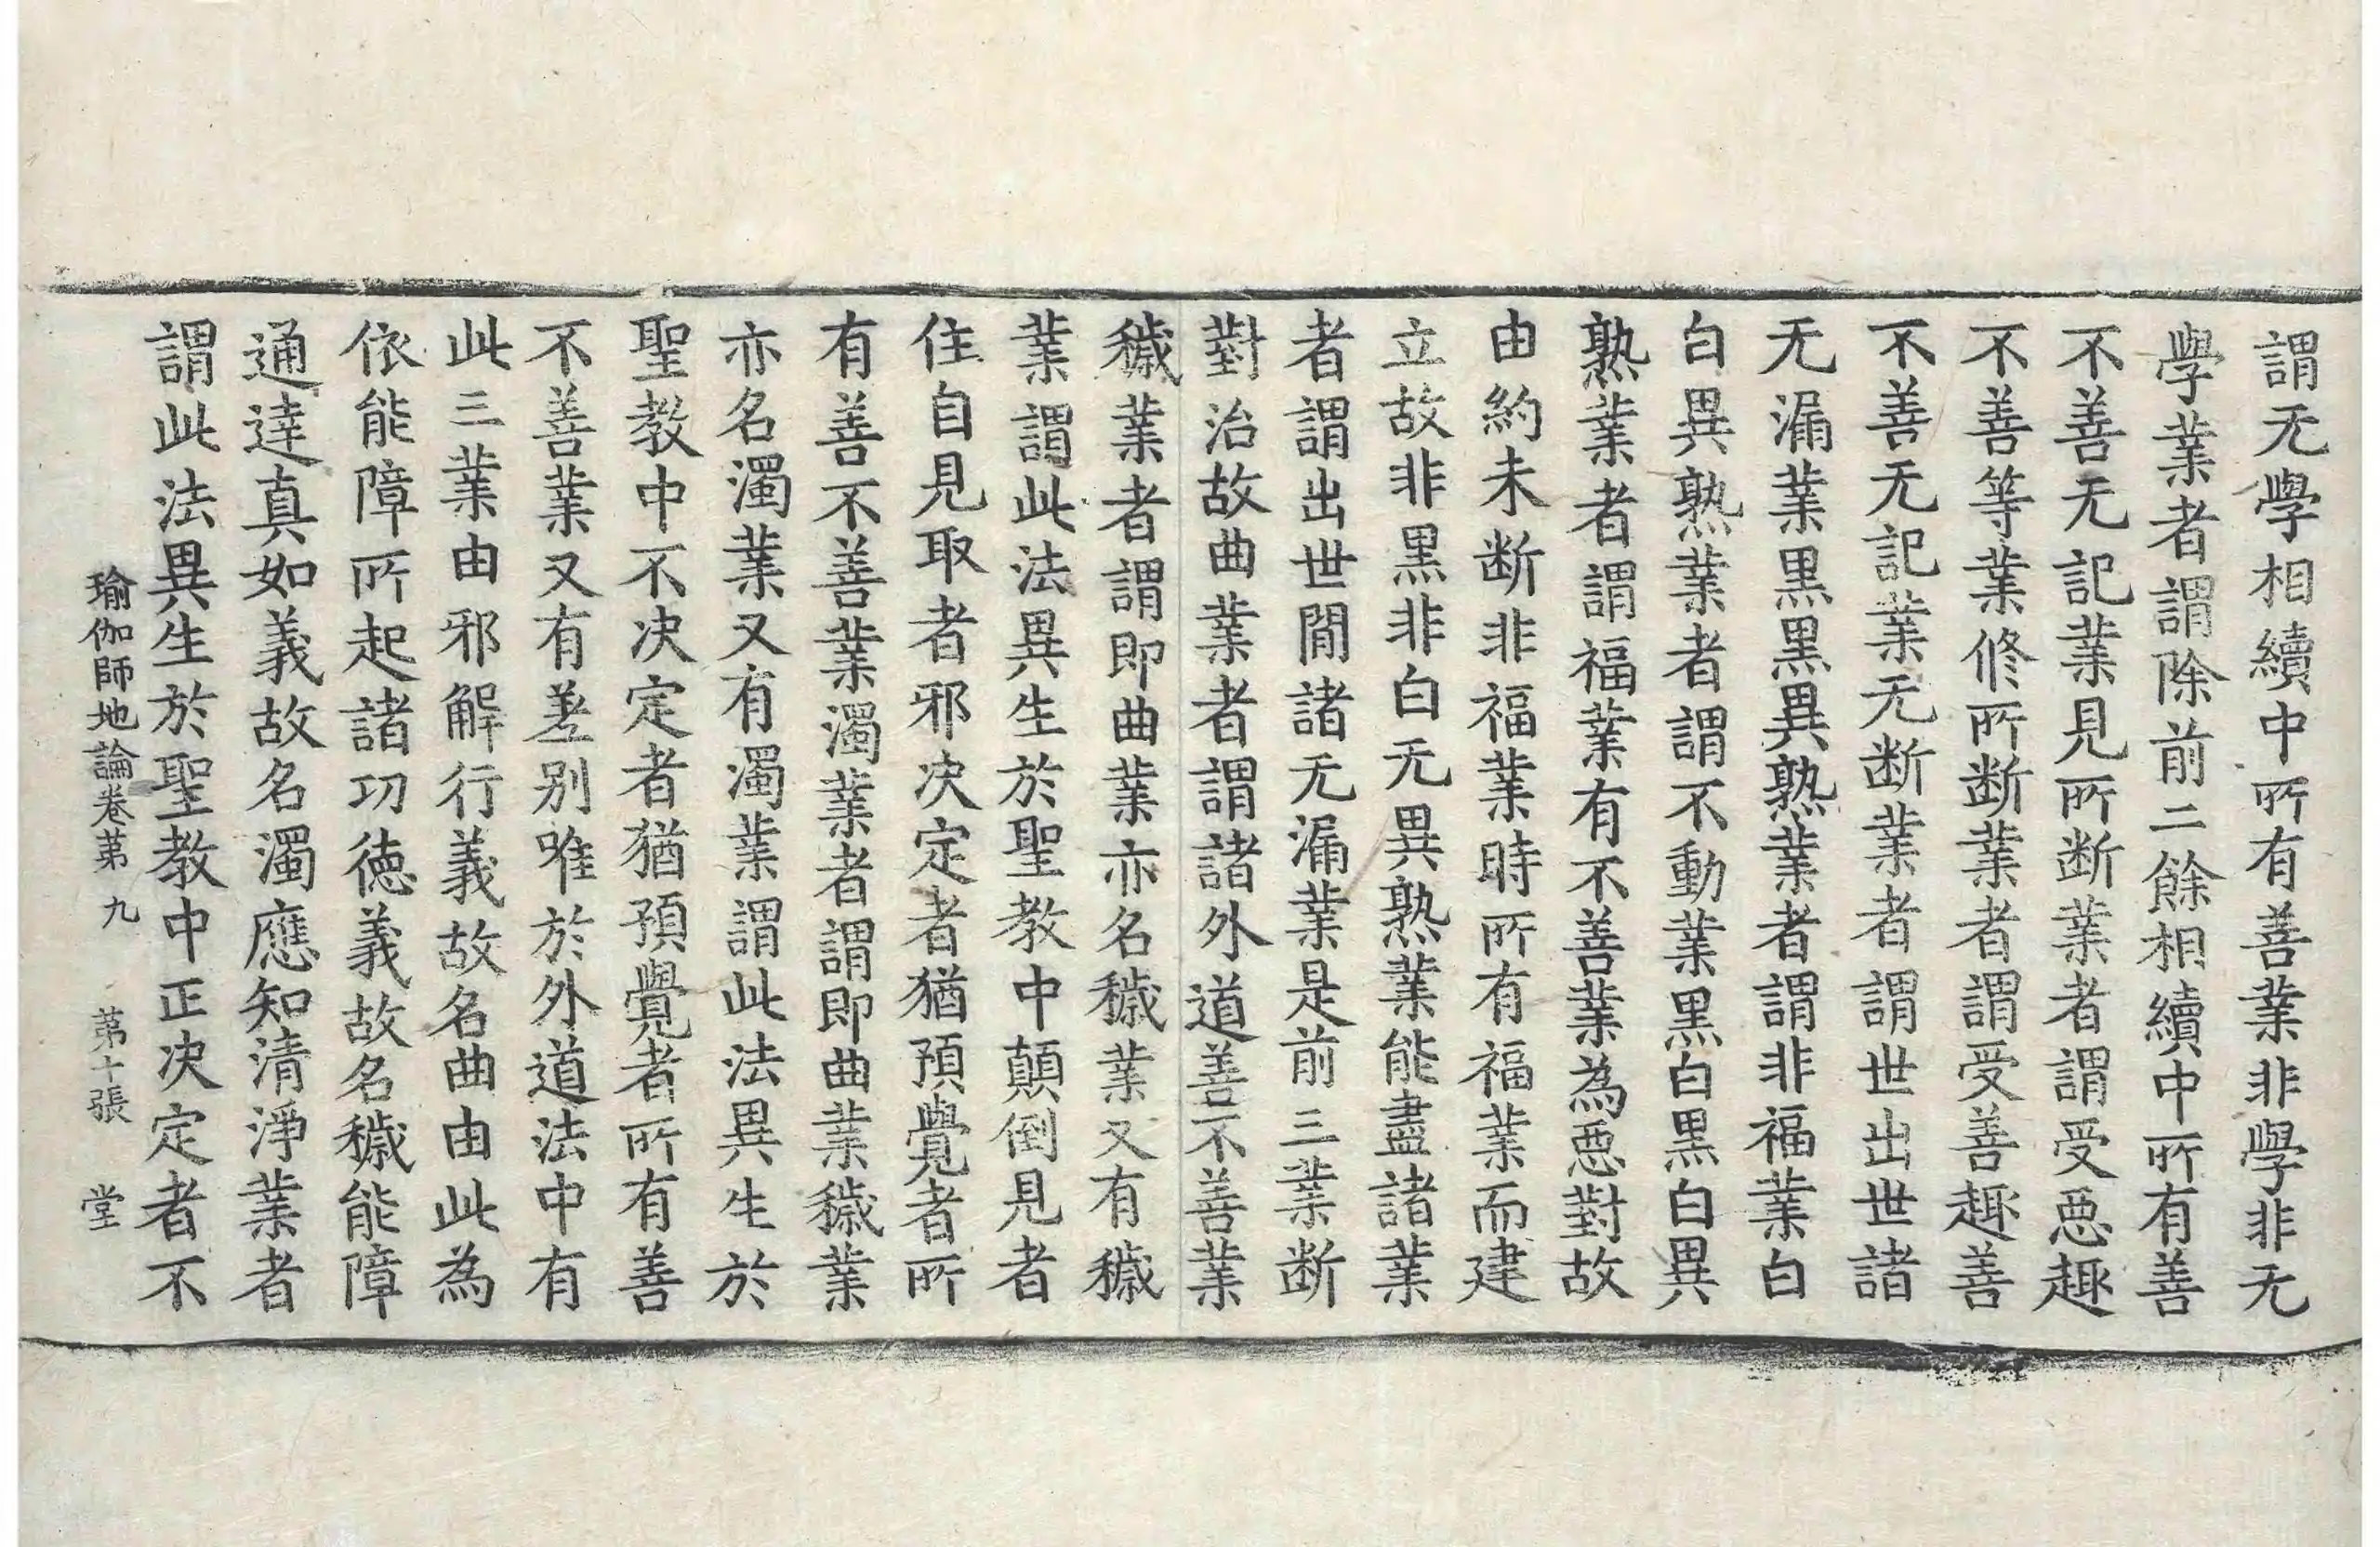 謂无學相續中所有善業非學非无
學業者謂除前二餘相續中所有善
不善无記業見所断業者謂受惡趣
不善等業修所断業者謂受善趣善
不善无記業无断業者謂世出世諸
无漏業黒黒異熟業者謂非福業白
白異熟業者謂不動業黒白黒白異
熟業者謂福業有不善業為惡對故
由約未断非福業時所有福業而建
立故非黒非白无異熟業能盡諸業
者謂出世間諸无漏業是前三業断
對治故曲業者謂諸外道善不善業
穢業者謂即曲業亦名穢業又有穢
業謂此法異生於聖教中顛倒見者
住自見取者邪决定者猶預覺者所
有善不善業濁業者謂即曲業穢業
亦名濁業又有濁業謂此法異生於
聖教中不决定者猶預覺者所有善
不善業又有差别唯於外道法中有
此三業由邪解行義故名曲由此為
依能障所起諸功德義故名穢能障
通達真如義故名濁應知清淨業者
謂此法異生於聖教中正决定者不
瑜伽師地論卷苐九 苐十張 堂